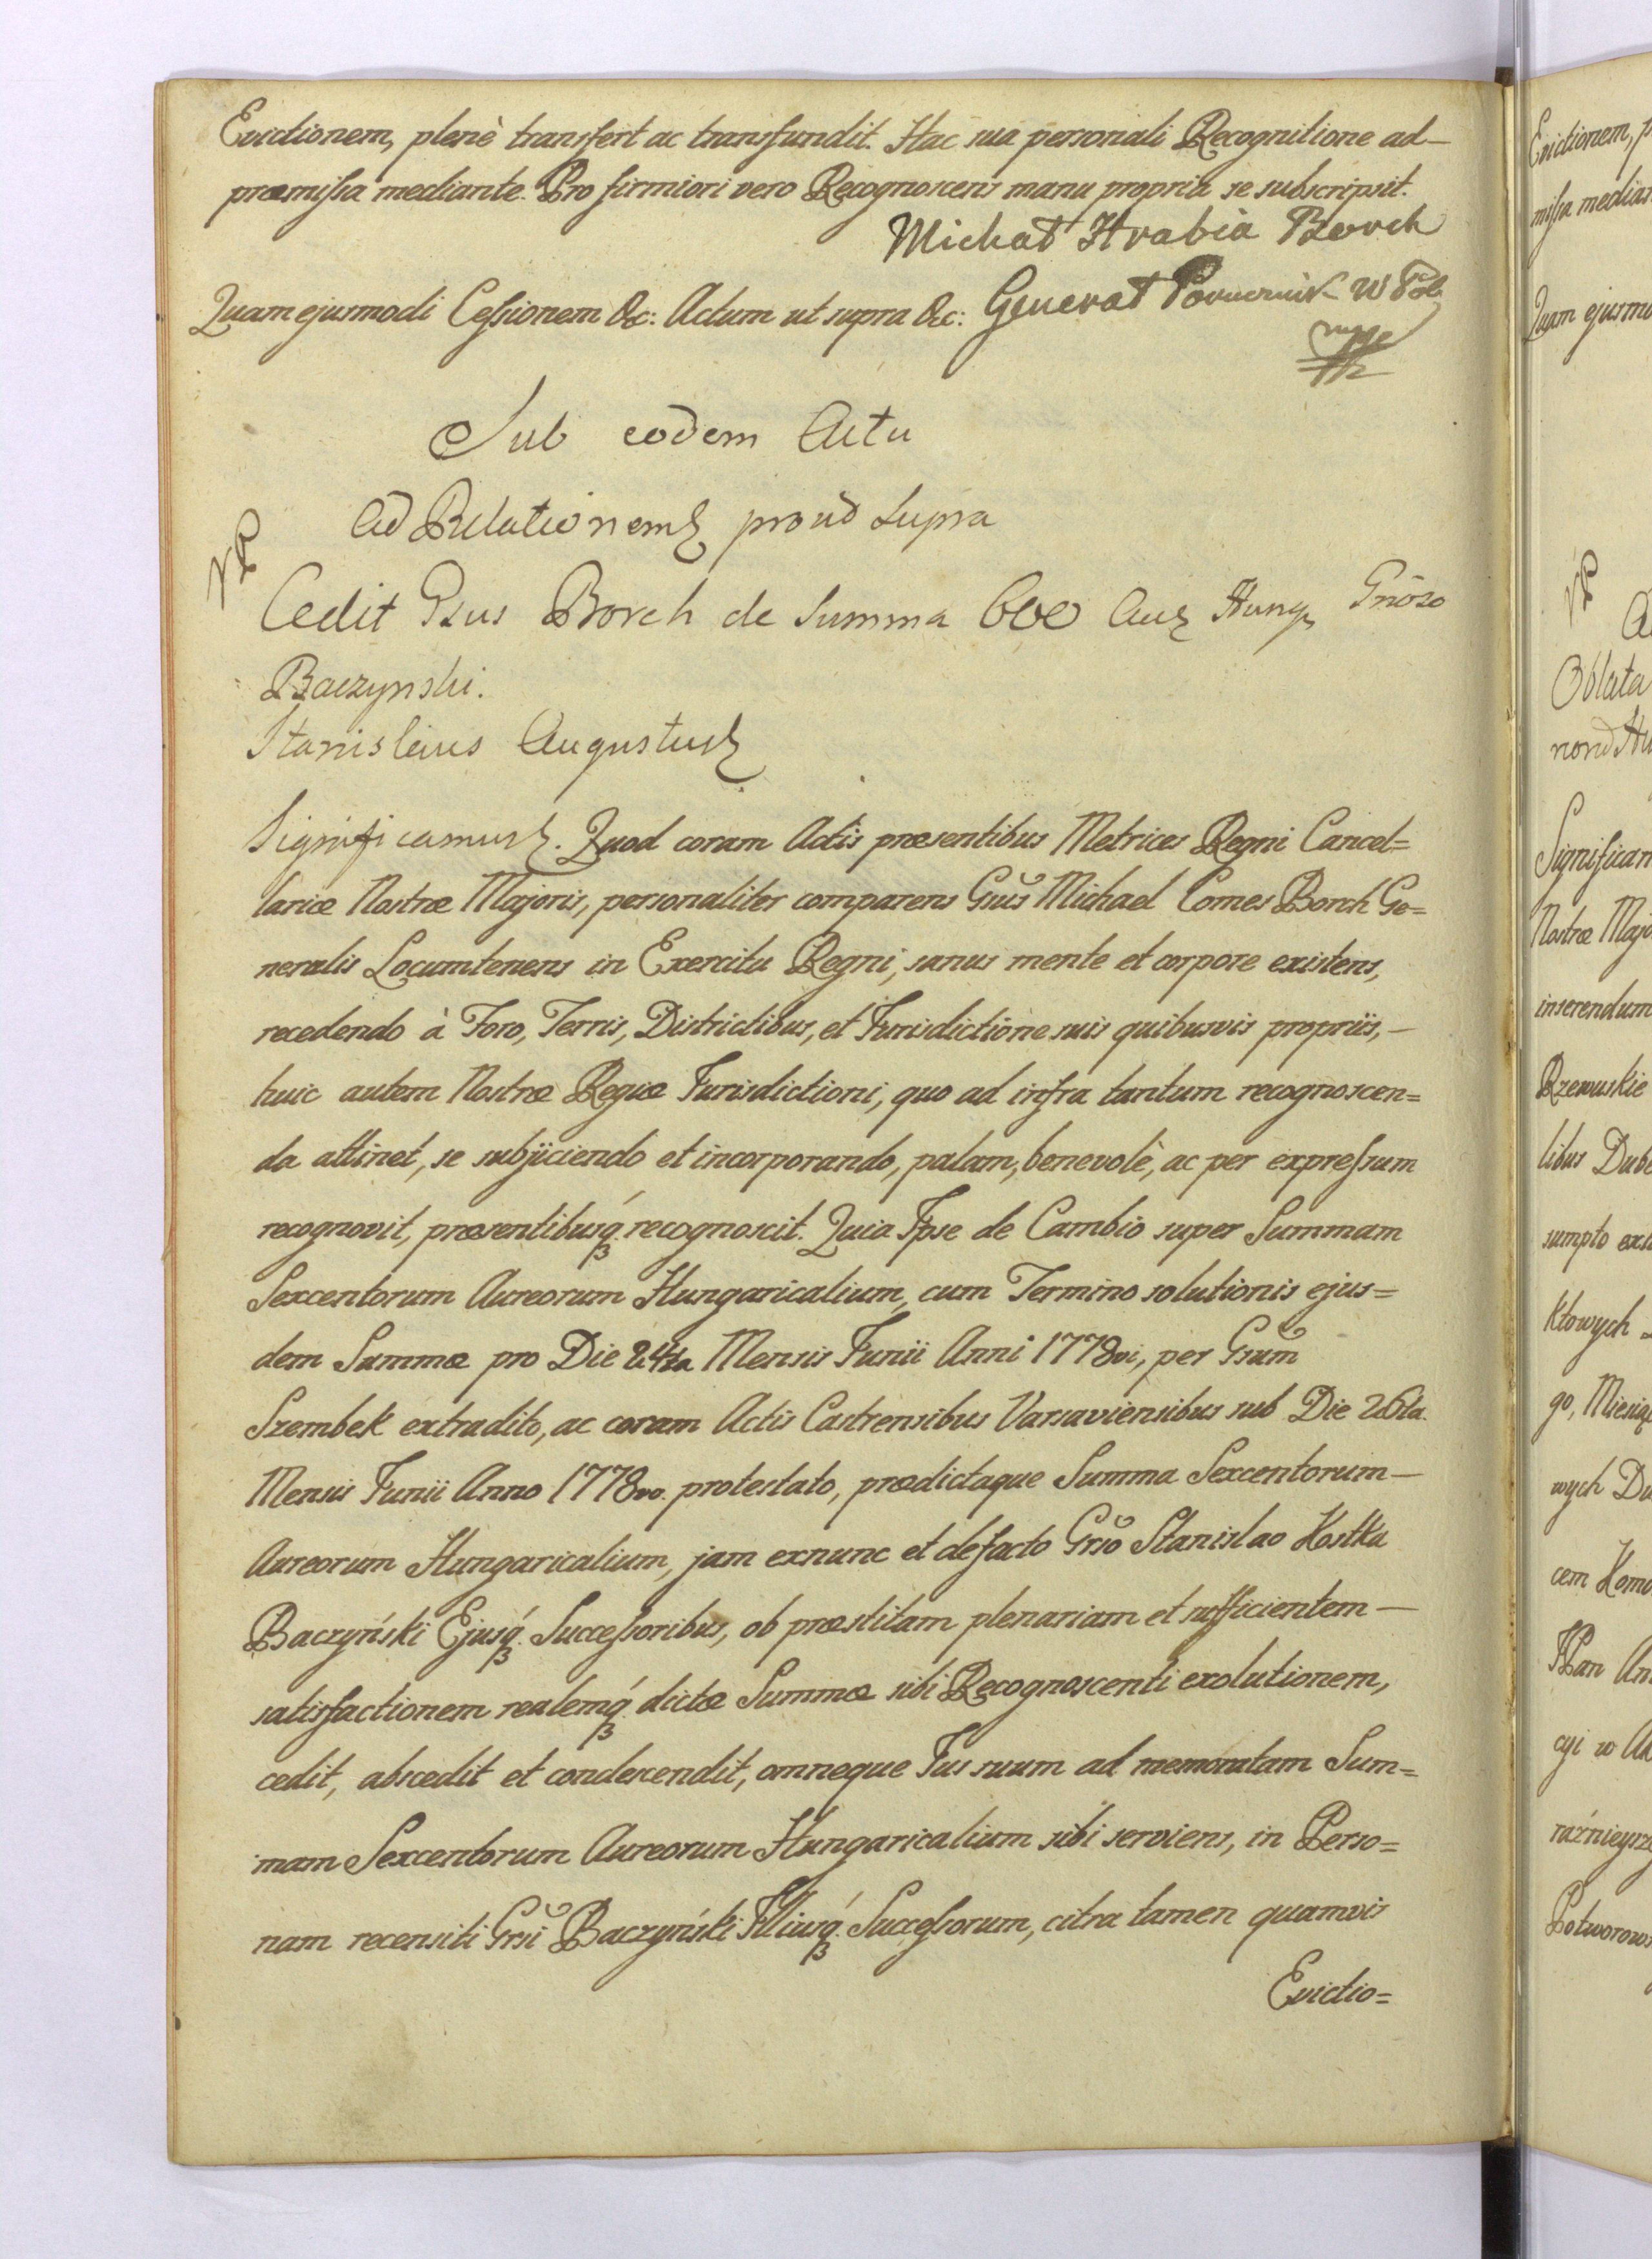 Evictionem, plenè transfert ac transfundit. Hac sua personali Recognitione ad-
præmissa mediante. Pro firmiori vero Recognoscens manu propria se subscripsit.
Michał Hrabia Borch
Quam ejusmodi Cessionem &c: Actum ut supra &c: Generał Porucznik W Pol
mpp
Sub eodem Actu
Ad Relationem prout supra
Cedit Gsus Borch de Summa 600 Aur Hung Gnoso
Baczynski.
Stanislaus Augustus
Significamus. Quod coram Actis præsentibus Metrices Regni Cancel=
lariæ Nostræ Majoris, personaliter comparens Gsus Michael Comes Borch Ge=
neralis Locumtenens in Exercitu Regni, sanus mente et corpore existens,
recedendo à Foro, Terris, Districtibus, et Jurisdictione suis quibusvis propriis,-
huic autem Nostræ Regiæ Jurisdictioni, quo ad infra tantum recognoscen=
da attinet, se subjiciendo et incorporando, palam, benevolè, ac per expressum
recognovit, præsentibusq. recognoscit. Quia Ipse de Cambio super Summam
Sexcentorum Aureorum Hungaricalium, cum Termino solutionis ejus=
dem Summæ pro Die 24ta Mensis Junii Anni 1778vi, per Gsum
Szembek extradito, ac coram Actis Castrensibus Varsaviensibus sub Die 26ta.
Mensis Junii Anno 1778vo. protestato, prædictaque Summa Sexcentorum-
Aureorum Hungaricalium, jam exnunc et defacto Gso Stanislao Kostka
Baczyński Ejusq. Successoribus, ob præstitam plenariam et sufficientem-
satisfactionem realemq. dictæ Summæ sibi Recognoscenti exolutionem,
cedit, abscedit et condescendit, omneque Jus suum ad memoratam Sum=
mam Sexcentorum Aureorum Hungaricalium sibi serviens, in Perso=
nam recensiti Gsi Baczyński Illiusq. Successorum, citra tamen quamvis
Evictio=
Evictionem, p
missa median
Quam ejusmo
Oblata
Significam
Nostræ Majo
inserendum
Rzewuskie
libus Dube
sumpto
ktowych
go, Miesią
wych Du
cem
Plan An
cyi w
raźnieysz
Potworows